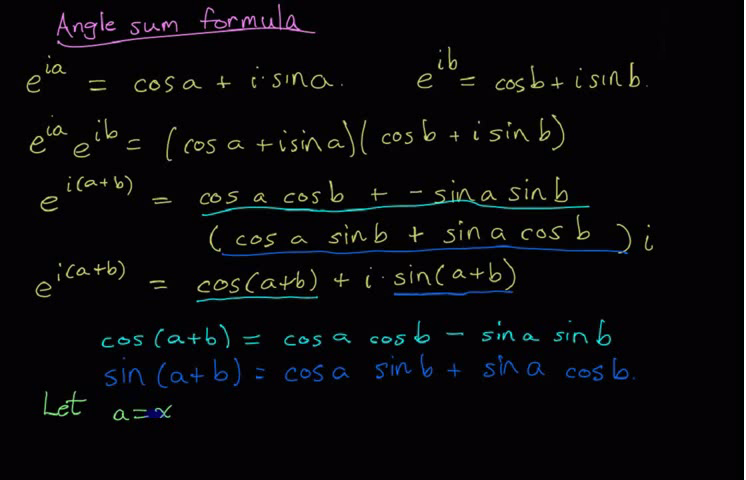 Angle sum formula
e^{ia} = cos a + i · sin a. e^{ib} = cos b + i sin b.
e^{ia} e^{ib} = (cos a + i sin a)(cos b + i sin b)
e^{i(a+b)} = cos a cos b + - sin a sin b
(cos a sin b + sin a cos b) i
e^{i(a+b)} = cos(a+b) + i · sin(a+b)
cos (a+b) = cos a cos b - sin a sin b
sin (a+b) = cos a sin b + sin a cos b.
Let a = x